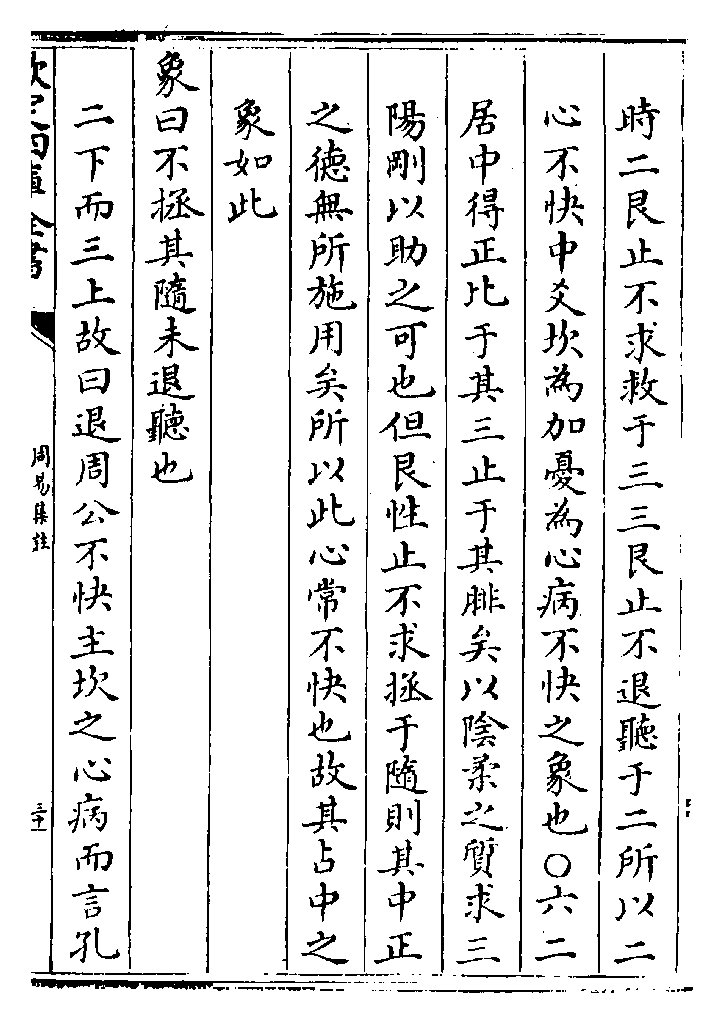 時二艮止不求救于三三艮止不退聽于二所以二
心不快中爻坎為加憂為心病不快之象也○六二
居中得正比于其三止于其腓矣以陰柔之質求三
陽剛以助之可也但艮性止不求拯于隨則其中正
之德無所施用矣所以此心常不快也故其占中之
象如此
象曰不拯其隨未退聽也
二下而三上故曰退周公不快主坎之心病而言孔
欽定四庫全書
周易集註